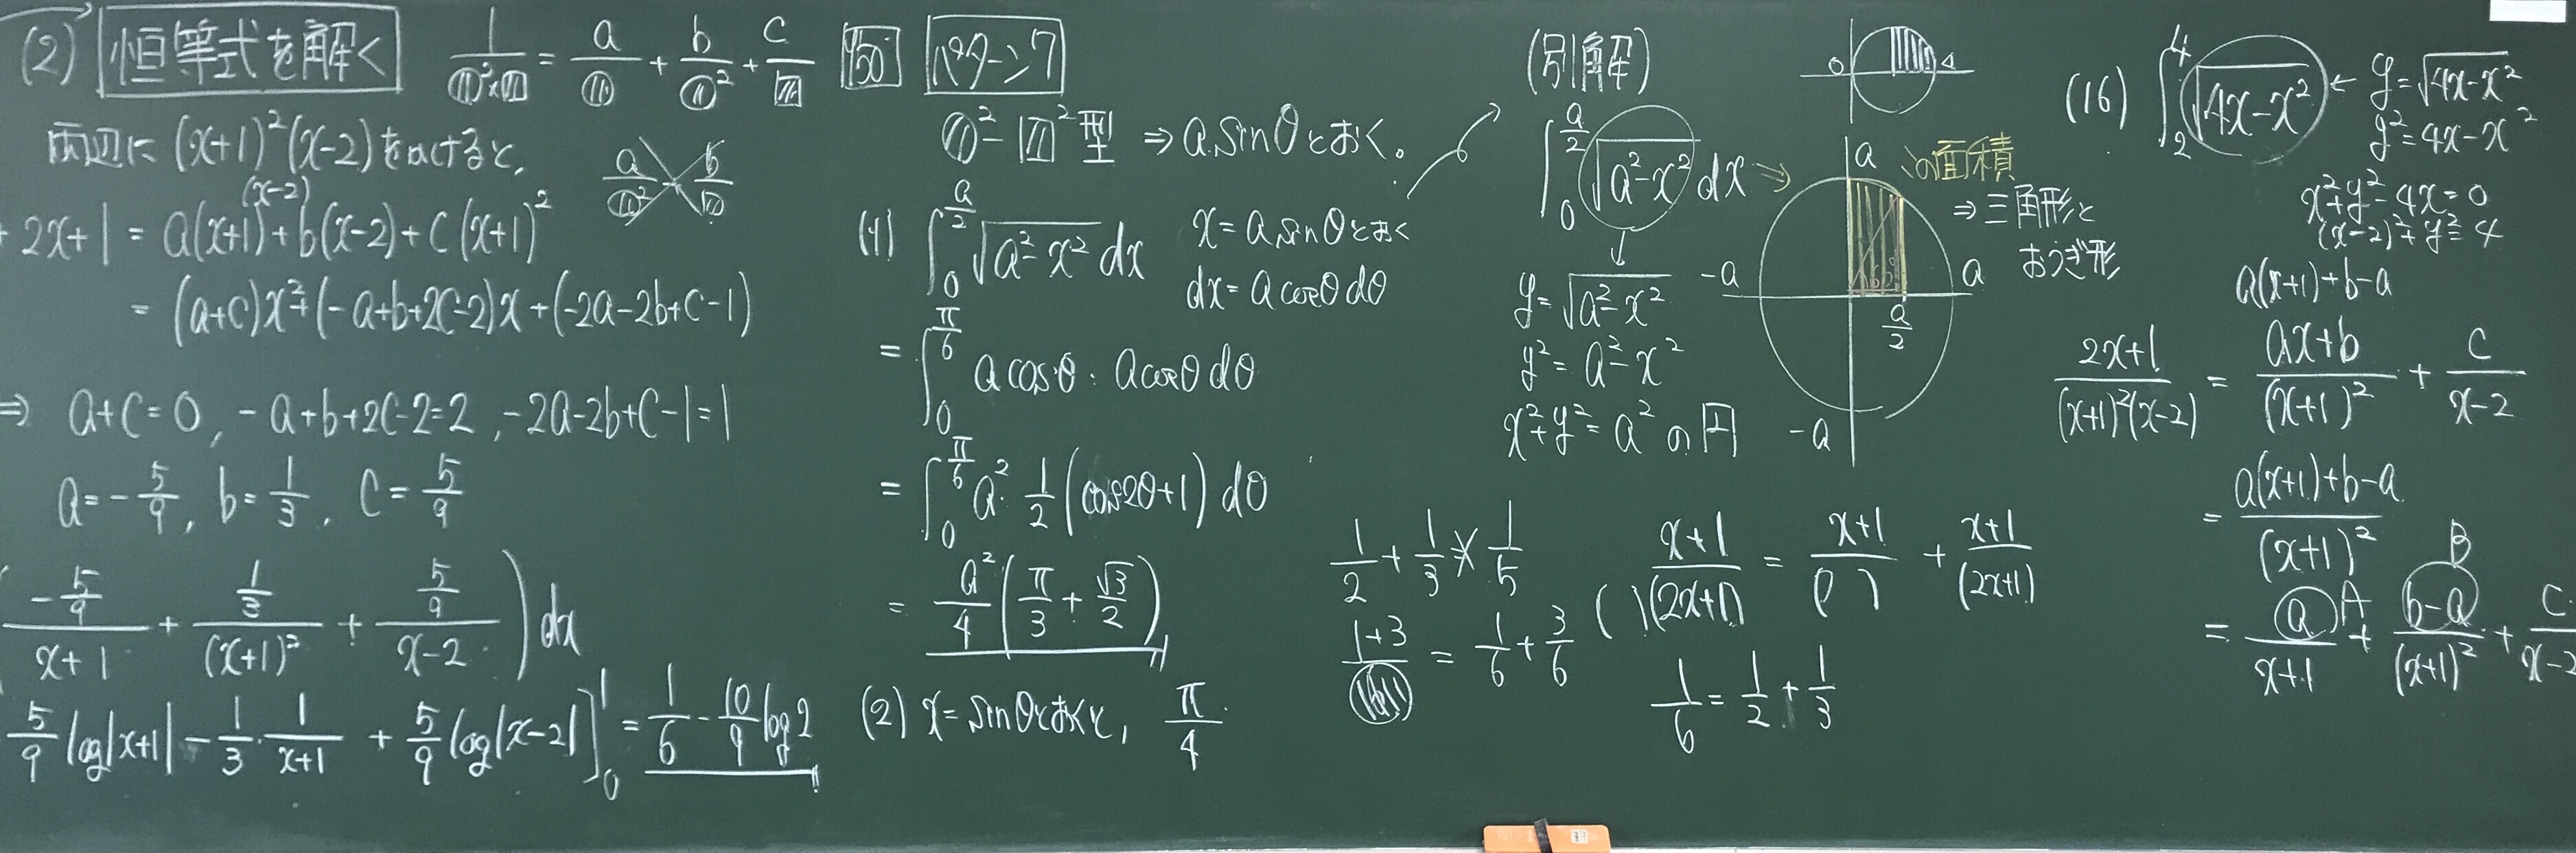 (2) 恒等式を解く 1/(○²×□) = a/○ + b/○² + c/□
両辺に (x+1)²(x-2)をかけると,
a/○² + b/□
2x+1 = a(x+1)(x-2)+b(x-2)+c(x+1)²
= (a+c)x²+(-a+b+2c-2)x+(-2a-2b+c-1)
⇒ a+c=0, -a+b+2c-2=2, -2a-2b+c-1=1
a=-5/9, b=1/3, c=5/9
(-5/9)/(x+1) + (1/3)/(x+1)² + (5/9)/(x-2) ) dx
5/9 log|x+1| - 1/3・1/(x+1) + 5/9 log|x-2| ]₀¹ = 1/6 - 10/9 log2
150 パターン7
○²-□²型 ⇒ a sinθとおく。
(1) ∫₀^(a/2) √(a²-x²) dx
x=a sinθとおく
dx=a cosθ dθ
= ∫₀^(π/6) a cosθ・a cosθ dθ
= ∫₀^(π/6) a²・1/2 (cos2θ+1) dθ
= a²/4 (π/3 + √3/2)
(2) x=sinθとおくと, π/4
(別解)
∫₀^(a/2) √(a²-x²) dx →
y=√(a²-x²)
y²=a²-x²
x²+y²=a²の円
0 4
a
-a a
a/2
-a
60°
の面積
⇒ 三角形と
おうぎ形
1/2 + 1/3 × 1/5
(1+3)/6 = 1/6 + 3/6
(x+1)/(( )(2x+1)) = (x+1)/( ) + (x+1)/(2x+1)
1/6 = 1/2 + 1/3
(16) ∫₂⁴ √(4x-x²) ← y=√(4x-x²)
y²=4x-x²
x²+y²-4x=0
(x-2)²+y²=4
a(x+1)+b-a
(2x+1)/((x+1)²(x-2)) = (ax+b)/(x+1)² + c/(x-2)
= (a(x+1)+b-a)/(x+1)²
A B
= a/(x+1) + (b-a)/(x+1)² + c/(x-2)